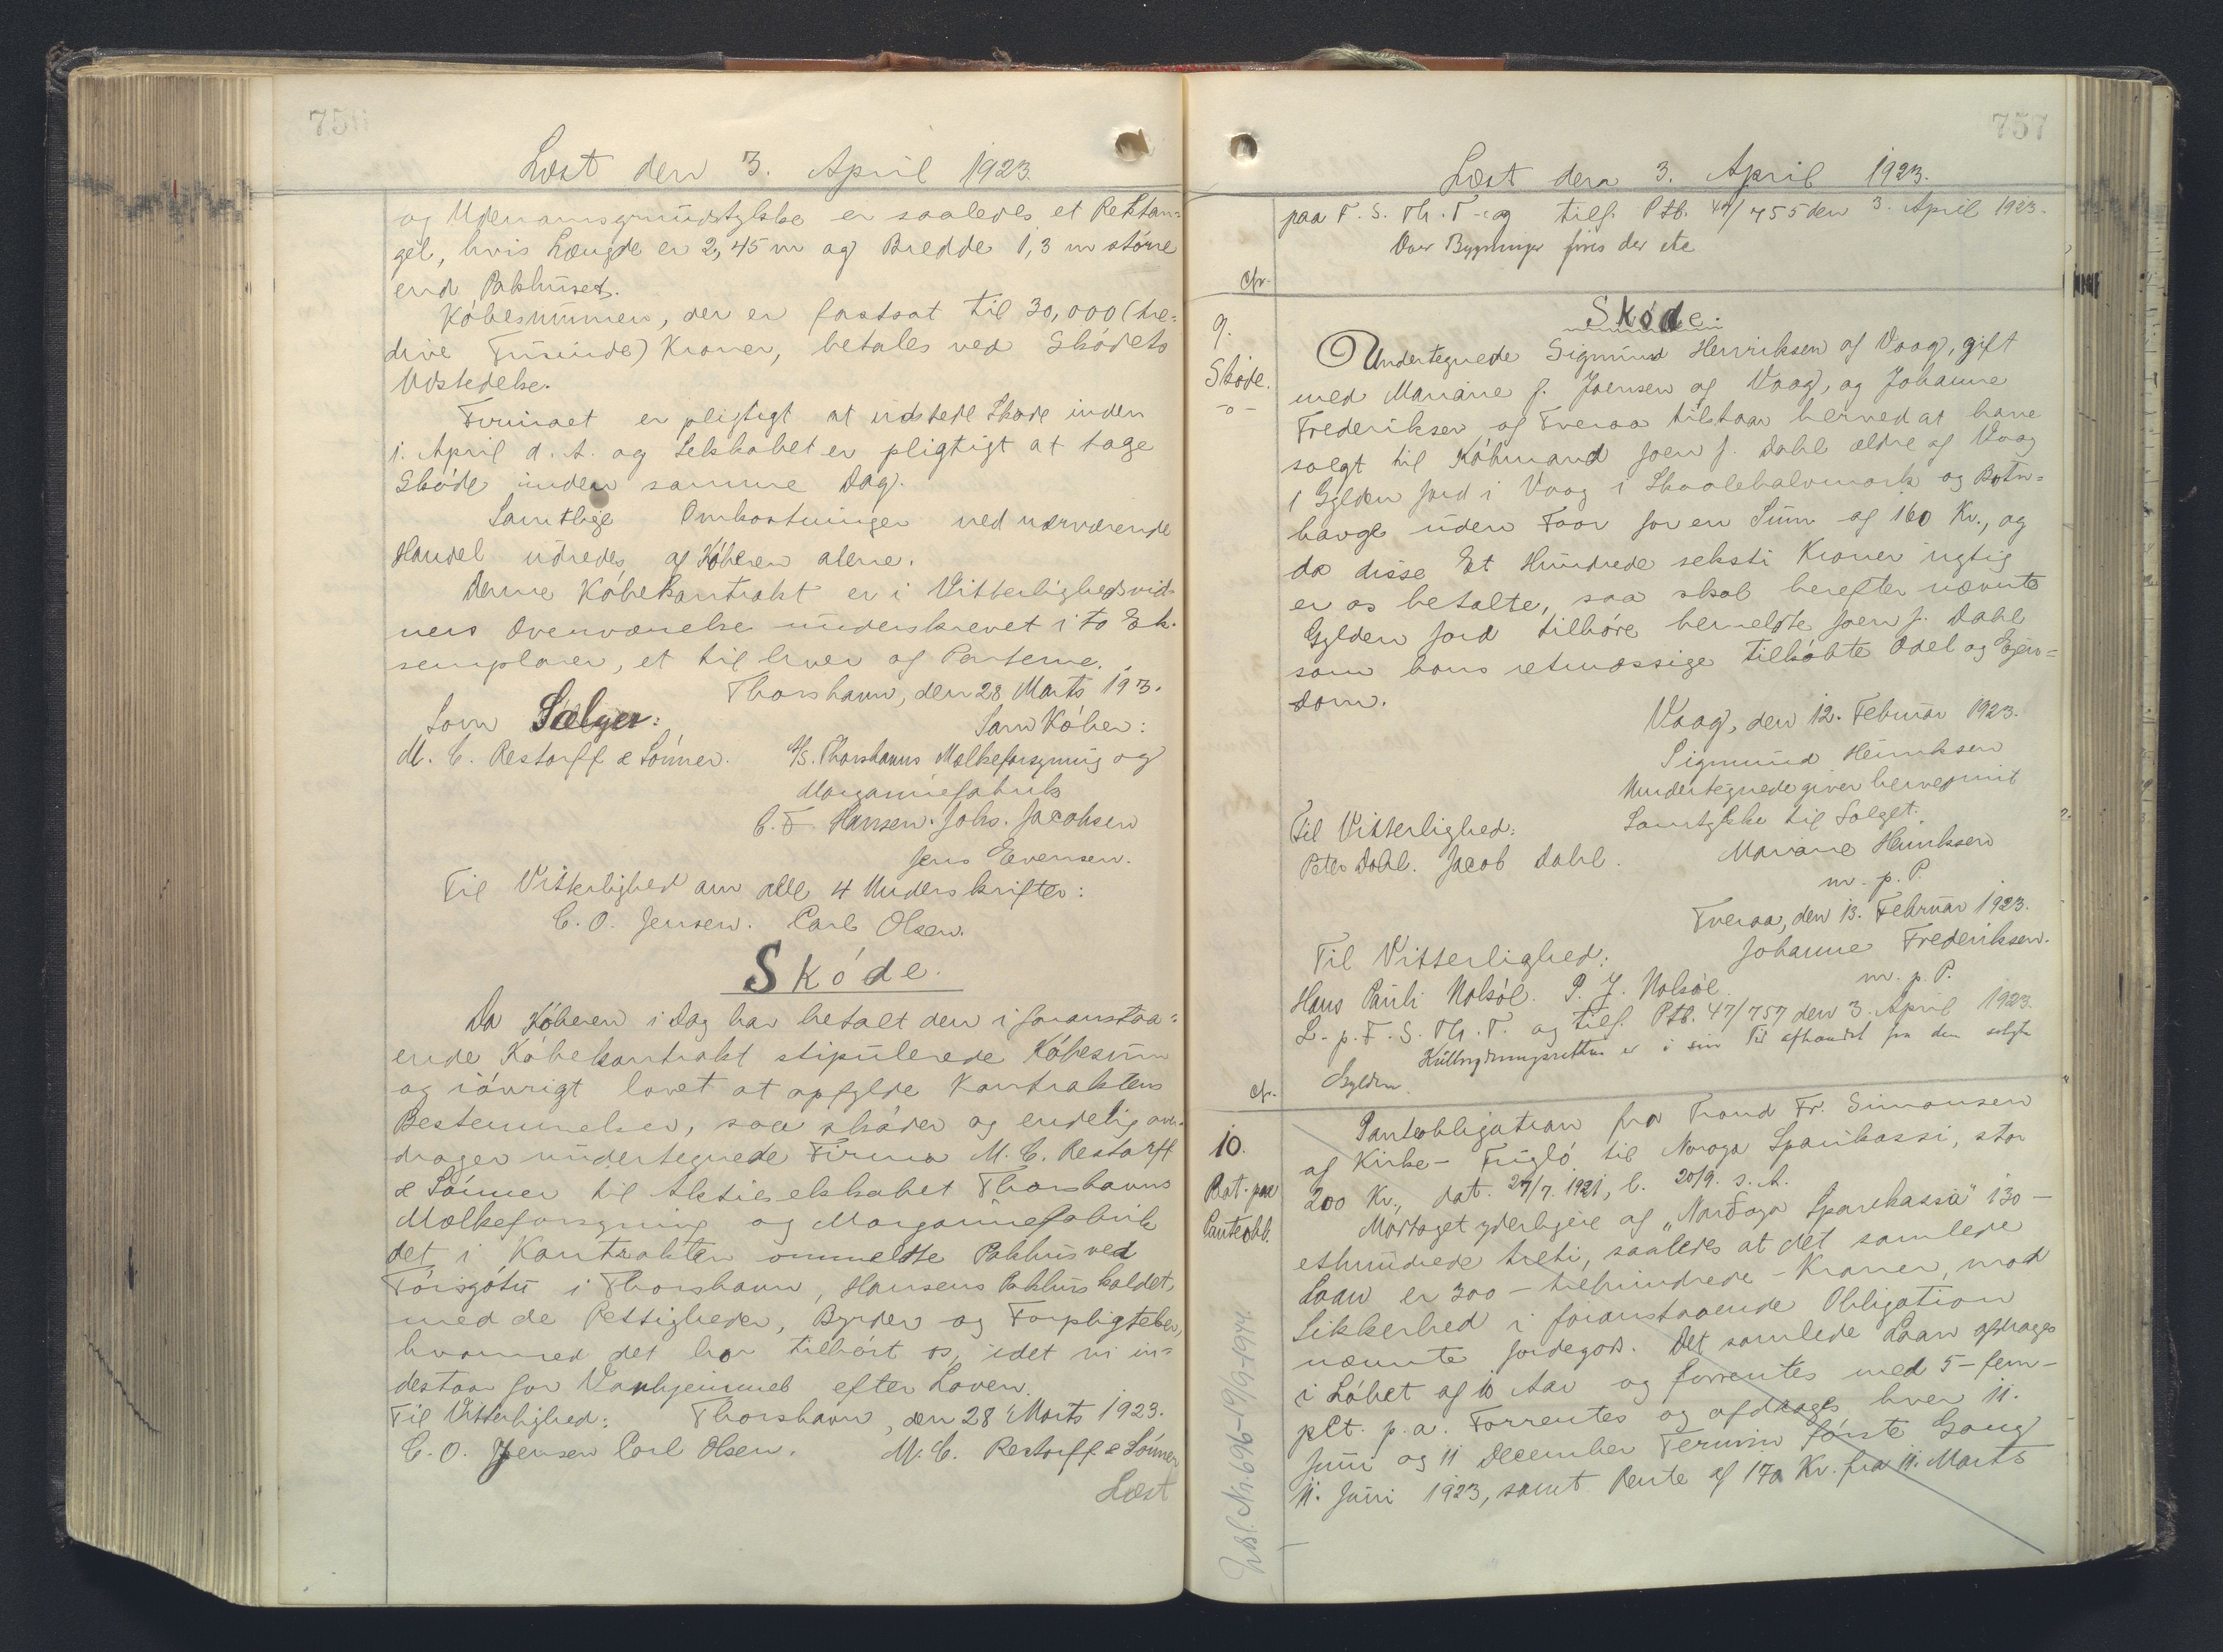 756
Læst den 3. April 1923.
og Udenomsgrundstykke er saaledes et Rektan=
gel, hvis Længde er 2,45 m og Bredde 1,3 m större
end Pakhuset.
Köbesummen, der er fastsat til 30,000 (tre=
dive Tusinde) Kroner, betales ved Sködets
Udstedelse.
Firmaet er pligtigt at udstede Sköde inden
1. April d. A. og Selskabet er pligtigt at tage
Sköde inden samme Dag.
Samtlige Omkostninger ved nærværende
Handel udredes af Köberen alene.
Denne Köbekontrakt er i Vitterlighedsvid=
ners Overværelse underskrevet i to Ek=
semplarer, et til hver af Parterne.
Thorshavn, den 28 Marts 193.
Som Sælger: Som Köber:
M. C. Restorff & Sönner. A/S. Thorshavns Mælkeforsyning og
Margarinefabrik
C. F. Hansen. Johs. Jacobsen
Jens Evensen.
Til Vitterlighed om alle 4 Underskrifter:
C. O. Jensen. Carl Olsen.
Sköde.
Da Köberen i Dag har betalt den i foranstaa=
ende Köbekontrakt stipulerede Köbesum
og iövrigt lovet at opfylde Kontraktens
Bestemmelser, saa sköder og endelig over=
drager undertegnede Firma M. C. Restorff
& Sönner til Aktieselskabet Thorshavns
Mælkeforsyning og Margarinefabrik
det i Kontrakten ommeldte Pakhus ved
Tórsgötu i Thorshavn, Hansens Pakhus kaldet,
med de Rettigheder, Byrder og Forpligtelser,
hvormed det har tilhört os, idet vi in=
destaar for Vanhjemmel efter Loven.
Til Vitterlighed: Thorshavn, den 28 Marts 1923.
C. O. Jensen Carl Olsen. M. C. Restorff & Sönner
Læst
757
Læst den 3. April 1923.
paa F. S. Th. T. og tilf. Ptb. 47/755 den 3. April 1923.
Over Bygninger föres der ikke
Cfr.
9.
Sköde.
-o-
Sköde.
Undertegnede Sigmund Henriksen af Vaag, gift
med Mariane f. Joensen af Vaag, og Johanne
Frederiksen af Tveraa tilstaar herved at have
solgt til Köbmand Joen J. Dahl ældre af Vaag
1 Gylden Jord i Vaag i Skaalehalvmark og Botn=
hauge uden Faar for en Sum af 160 Kr., og
da disse Et Hundrede seksti Kroner rigtig
er os betalte, saa skal herefter nævnte
Gylden Jord tilhöre bemeldte Joen J. Dahl
som hans retmæssige tilköbte Odel og Ejen=
dom.
Vaag, den 12. Februar 1923.
Sigmund Henriksen
Undertegnede giver herved mit
Til Vitterlighed: Samtykke til Salget.
Peter Dahl. Jacob Dahl. Mariane Henriksen
m. p. P.
Tveraa, den 13. Februar 1923.
Til Vitterlighed: Johanne Frederiksen.
Hans Pauli Nolsöe. P. J. Nolsöe. m. p. P.
L. p. F. S. Th. T. og tilf. Ptb. 47/757 den 3. April 1923.
er i sin Tid afhændet fra den solgte
Gylden.
Cfr.
10.
Paat. paa
Panteobl.
Panteobligation fra Trond Fr. Simonsen
af Kirke - Fugló til Norðoya Sparikassi, stor
200 Kr., dat. 27/7. 1921, l. 20/9. s. A.
Modtaget yderligere af "Norðoya Sparikassa" 130 -
ethundrede treti, saaledes at det samlede
Laan er 300 - trehundrede - Kroner, mod
Sikkerhed i foranstaaende Obligation
nævnte Jordegods. Det samlede Laan afdrages
i Löbet af 10 Aar og forrentes med 5 - fem -
pCt. p. a. Forrentes og afdrages hver 11.
Juni og 11 December Termin förste Gang
11. Juni 1923, samt Rente af 170 Kr. fra 11. Marts
Udsl. No. 696-19/9-1974.